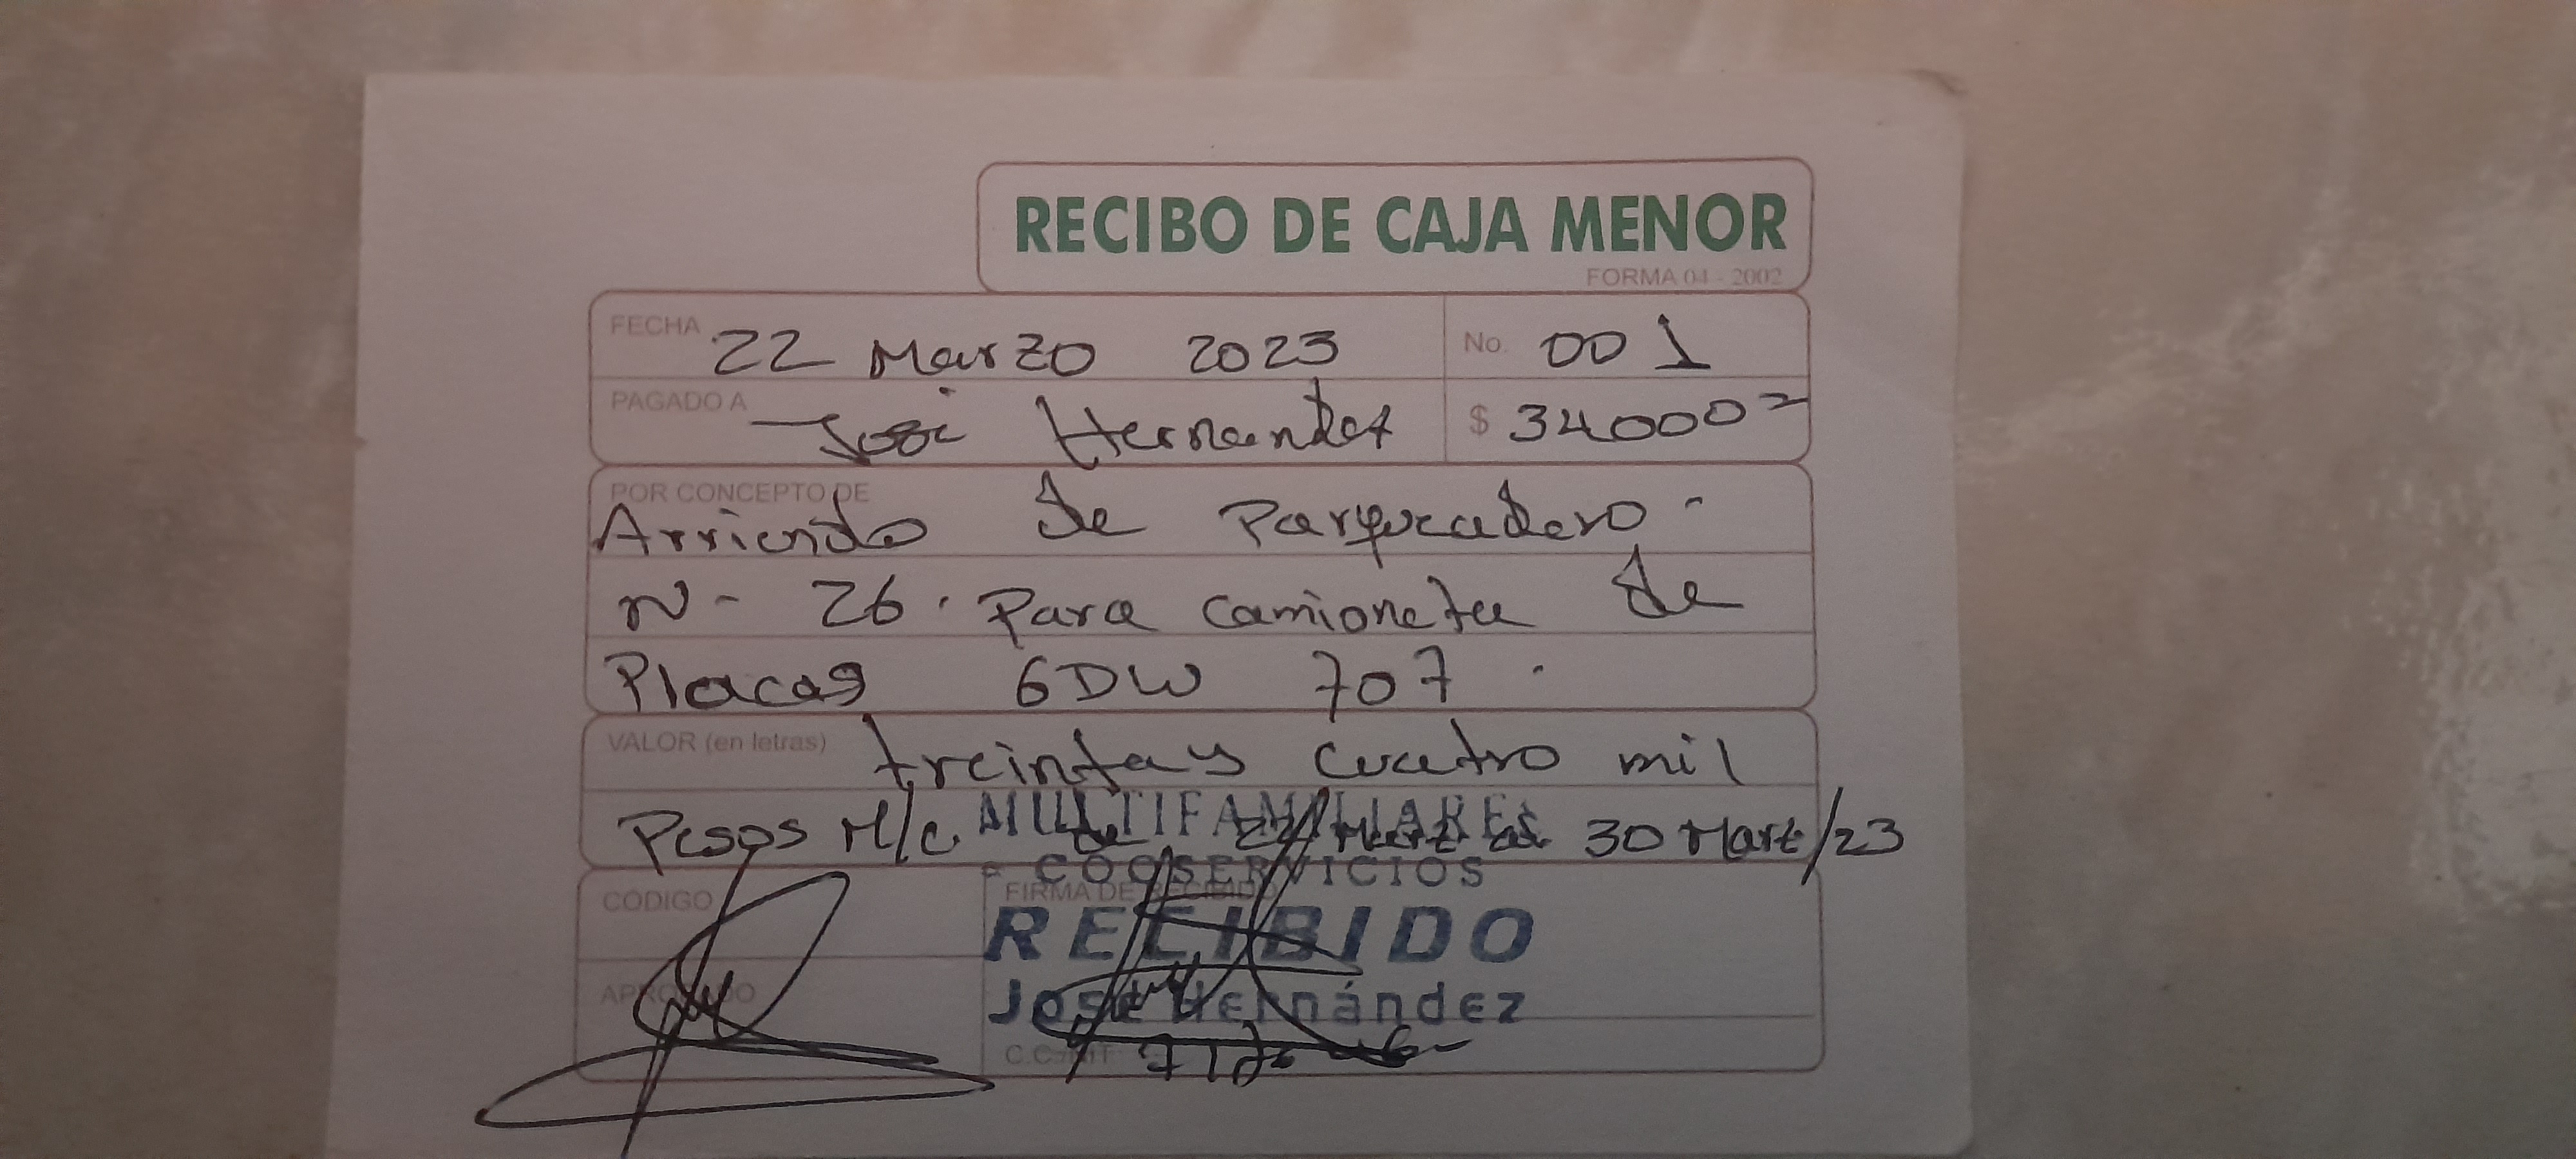 RECIBO DE CAJA MENOR
FORMA 04 - 2002
FECHA 22 Marzo 2023 No. 001
PAGADO A José Hernandez $ 34000=
POR CONCEPTO DE
Arriendo de Parqueadero.
N- 26. Para camioneta de
Placas GDW 707.
VALOR (en letras) treinta y cuatro mil
Pesos M/c. de 22/Marz al 30 Marz/23
MULTIFAMILIARES
COOSERVICIOS
CODIGO FIRMA DE RECIBIDO
RECIBIDO
APROBADO José Hernández
C.C./NIT.